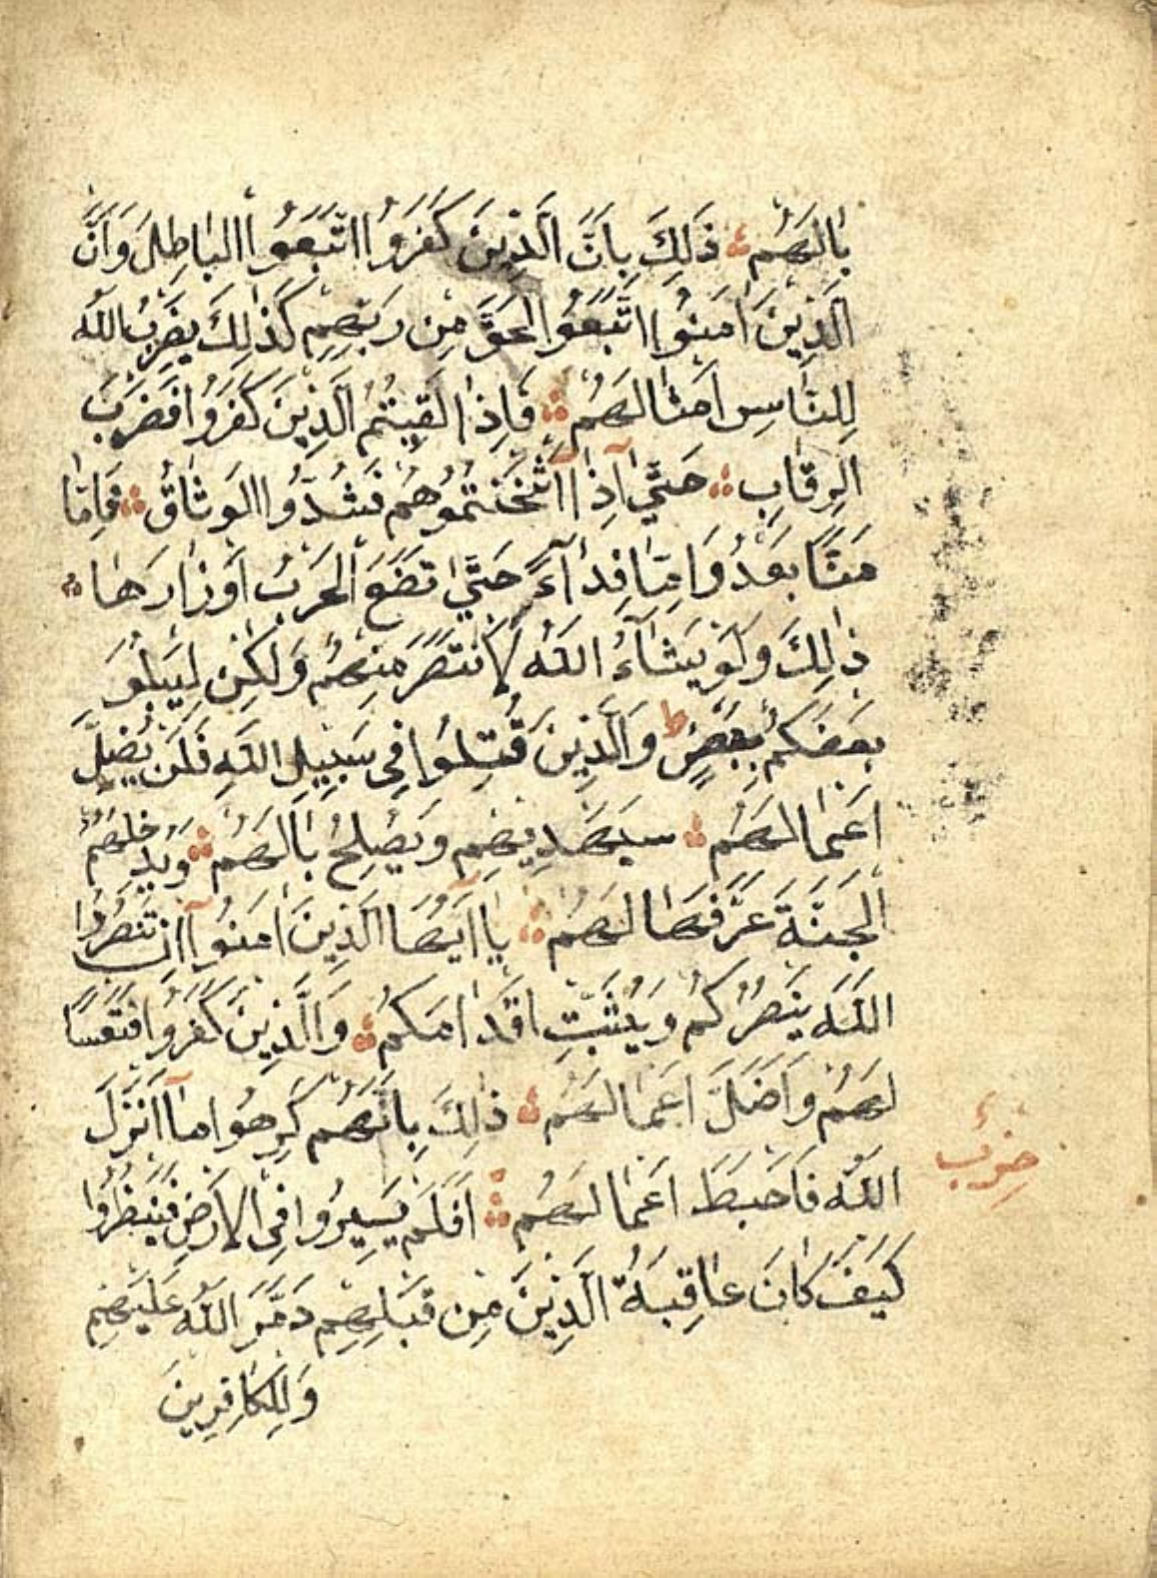 بَالَهُمْ ذَلِكَ بِاَنَّ الَّذِينَ كَفَرُوا اتَّبَعُوا الْبَاطِلَ وَاَنَّ
الَّذِينَ اٰمَنُوا اتَّبَعُوا الْحَقَّ مِنْ رَبِّهِمْ كَذٰلِكَ يَضْرِبُ اللّٰهُ
لِلنَّاسِ اَمْثَالَهُمْ فَاِذَا لَقِيتُمُ الَّذِينَ كَفَرُوا فَضَرْبَ
الرِّقَابِ حَتَّى اِذَا اَثْخَنْتُمُوهُمْ فَشُدُّوا الْوَثَاقَ فَاِمَّا
مَنًّا بَعْدُ وَاِمَّا فِدَآءً حَتَّى تَضَعَ الْحَرْبُ اَوْزَارَهَا
ذٰلِكَ وَلَوْ يَشَآءُ اللّٰهُ لَانْتَصَرَ مِنْهُمْ وَلٰكِنْ لِيَبْلُوَ
بَعْضَكُمْ بِبَعْضٍ ط وَالَّذِينَ قُتِلُوا فِي سَبِيلِ اللّٰهِ فَلَنْ يُضِلَّ
اَعْمَالَهُمْ سَيَهْدِيهِمْ وَيُصْلِحُ بَالَهُمْ وَيُدْخِلُهُمُ
الْجَنَّةَ عَرَّفَهَا لَهُمْ يَا اَيُّهَا الَّذِينَ اٰمَنُوا اِنْ تَنْصُرُوا
اللّٰهَ يَنْصُرْكُمْ وَيُثَبِّتْ اَقْدَامَكُمْ وَالَّذِينَ كَفَرُوا فَتَعْسًا
لَهُمْ وَاَضَلَّ اَعْمَالَهُمْ ذٰلِكَ بِاَنَّهُمْ كَرِهُوا مَا اَنْزَلَ
اللّٰهُ فَاَحْبَطَ اَعْمَالَهُمْ اَفَلَمْ يَسِيرُوا فِي الْاَرْضِ فَيَنْظُرُوا
حِزْب
كَيْفَ كَانَ عَاقِبَةُ الَّذِينَ مِنْ قَبْلِهِمْ دَمَّرَ اللّٰهُ عَلَيْهِمْ
وَلِلْكَافِرِينَ